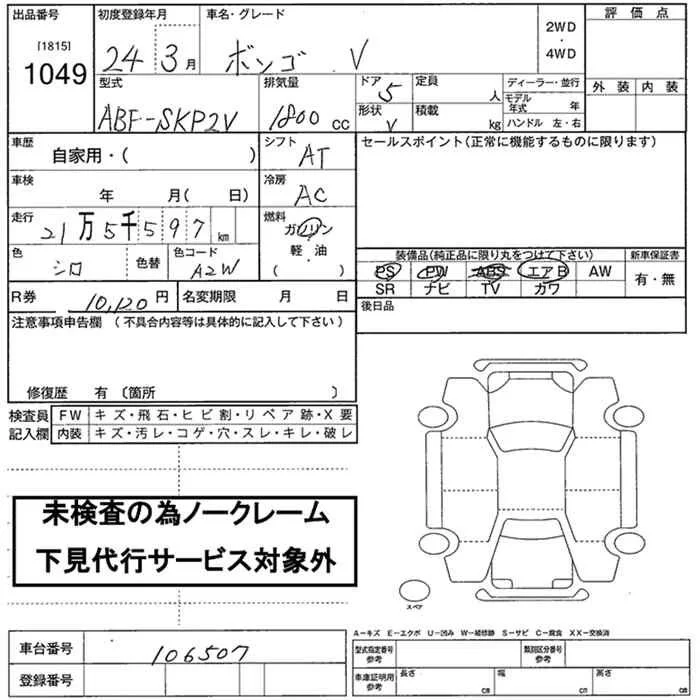 出品番号 初度登録年月 車名・グレード 2WD・4WD 評価点
[1815]
1049
24 3月 ボンゴ V
外装 内装
型式 排気量 ドア 定員 ディーラー・並行
ABF-SKP2V 1800 CC 5 人 モデル年式 年
形状 積載 ハンドル 左・右
V kg
車歴 シフト セールスポイント(正常に機能するものに限ります)
自家用・( ) AT
車検 冷房
年 月( 日) AC
走行 燃料
21万5千597 km ガソリン
軽・油
( )
色 色替 色コード 装備品(純正品に限り丸をつけて下さい) 新車保証書
シロ A2W PS PW ABS エアB AW 有・無
SR ナビ TV カワ
R券 10,120円 名変期限 月 日 後日品
注意事項申告欄 (不具合内容等は具体的に記入して下さい)
修復歴 有 (箇所 )
検査員 FW キズ・飛石・ヒビ割・リペア跡・X要
記入欄 内装 キズ・汚レ・コゲ・穴・スレ・キレ・破レ
未検査の為ノークレーム
下見代行サービス対象外
スペア
A-キズ E-エクボ U-凹み W-補修跡 S-サビ C-腐食 XX-交換済
車台番号 106507
型式指定番号 参考 類別区分番号 参考
登録番号
車庫証明用 参考 長さ cm 幅 cm 高さ cm